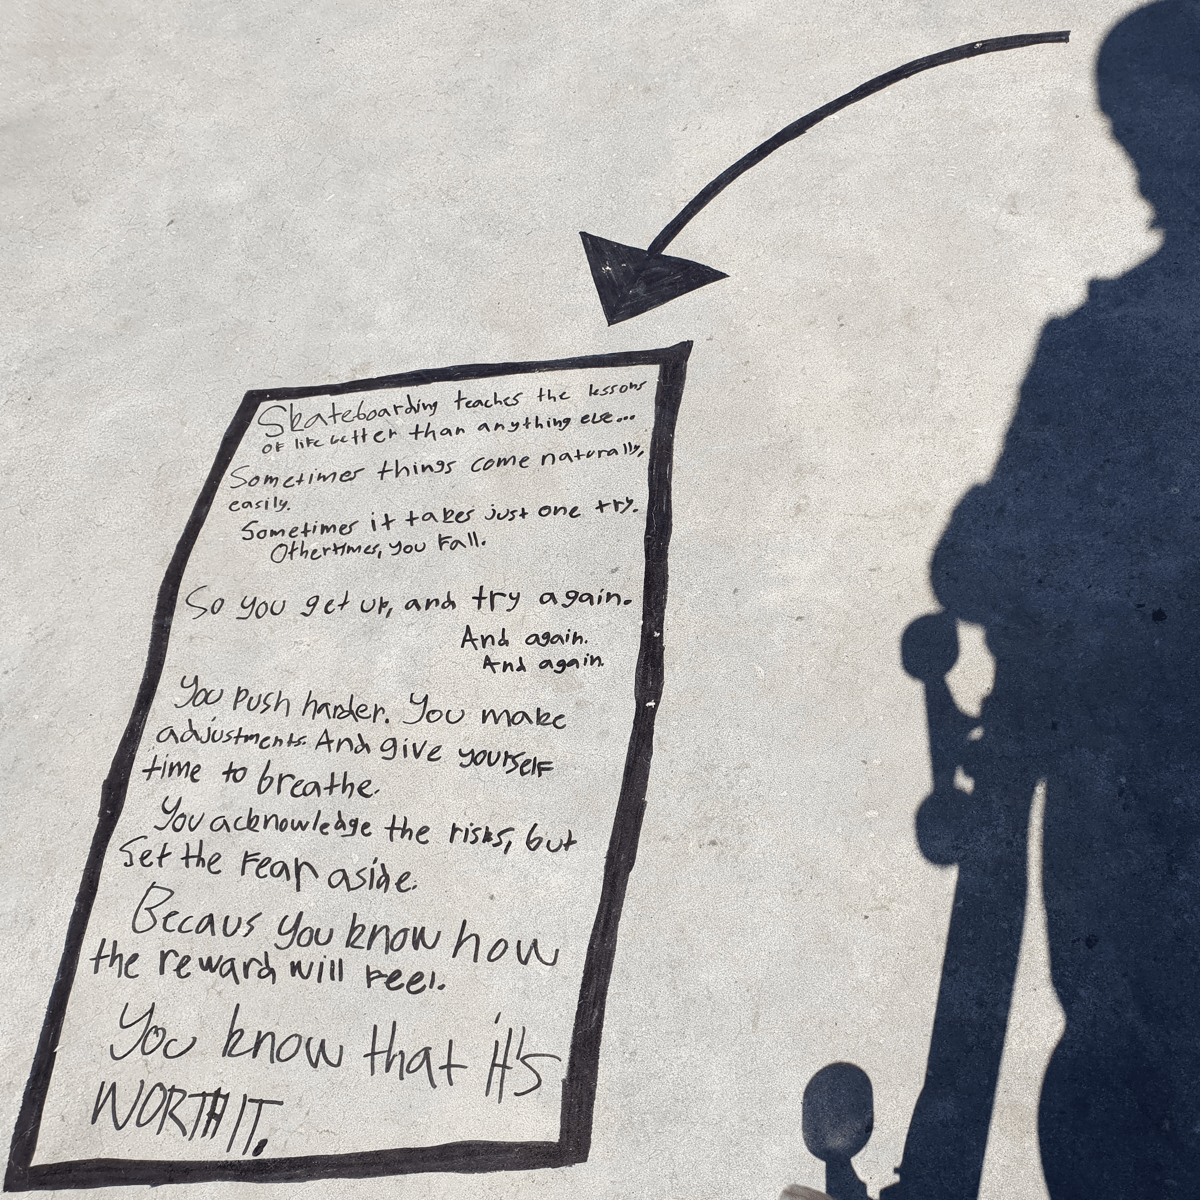 Skateboarding teaches the lessons
of life better than anything else...
Sometimes things come naturally,
easily.
Sometimes it takes just one try.
Othertimes, you fall.
So you get up, and try again.
And again.
And again.
You push harder. You make
adjustments. And give yourself
time to breathe.
You acknowledge the risks, but
set the fear aside.
Becaus you know how
the reward will feel.
You know that it's
WORTH IT.